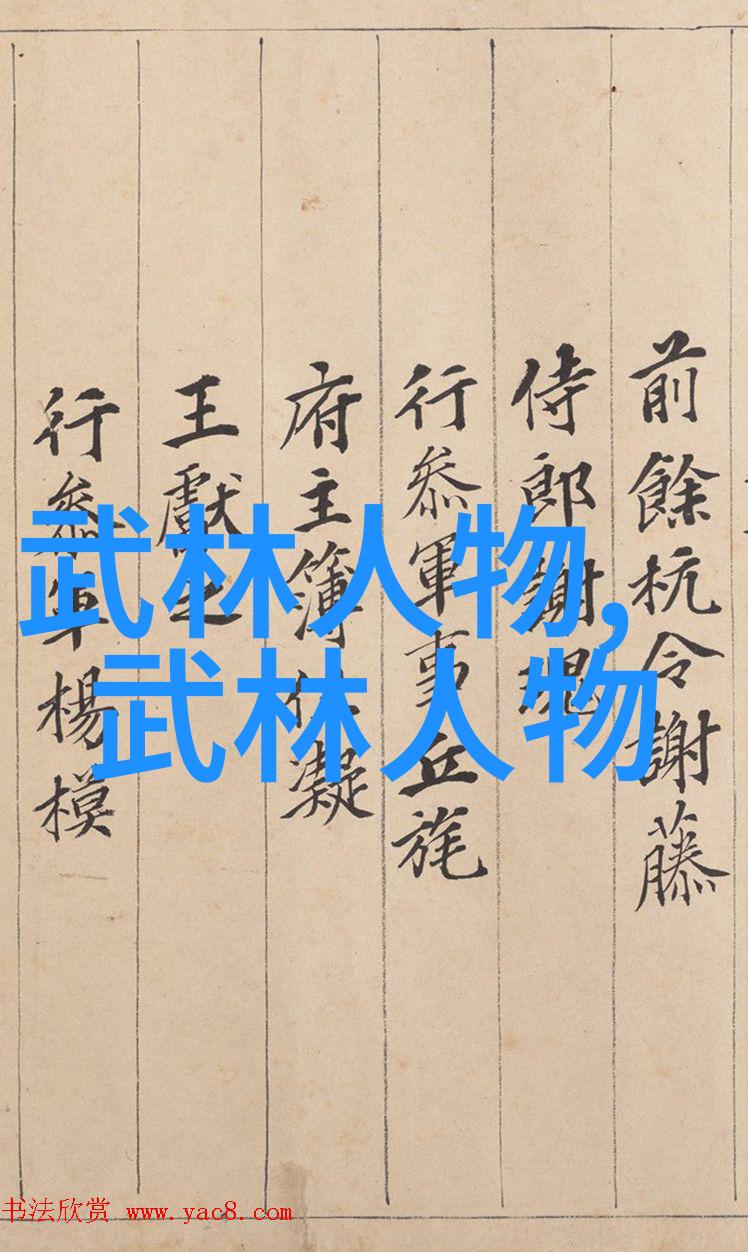 前餘杭令謝藤
侍郎謝瑰
行叅軍事丘旄
府主簿任凝
王獻之
行叅軍楊模
武林人物,
武林人物
书法欣赏 www.yac8.com